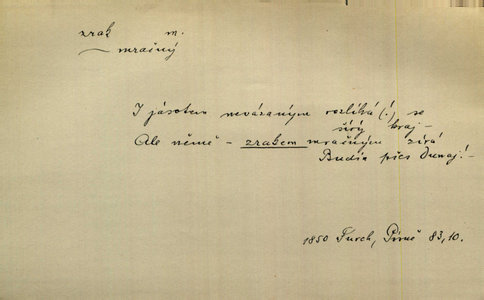 zrak m.
mračný
I jásotem nevázaným rozlíhá(!) se
širý kraj –
Ale němě – zrakem mračným zírá
Budín přes Dunaj! –
1850 Furch, Písně 83, 10.